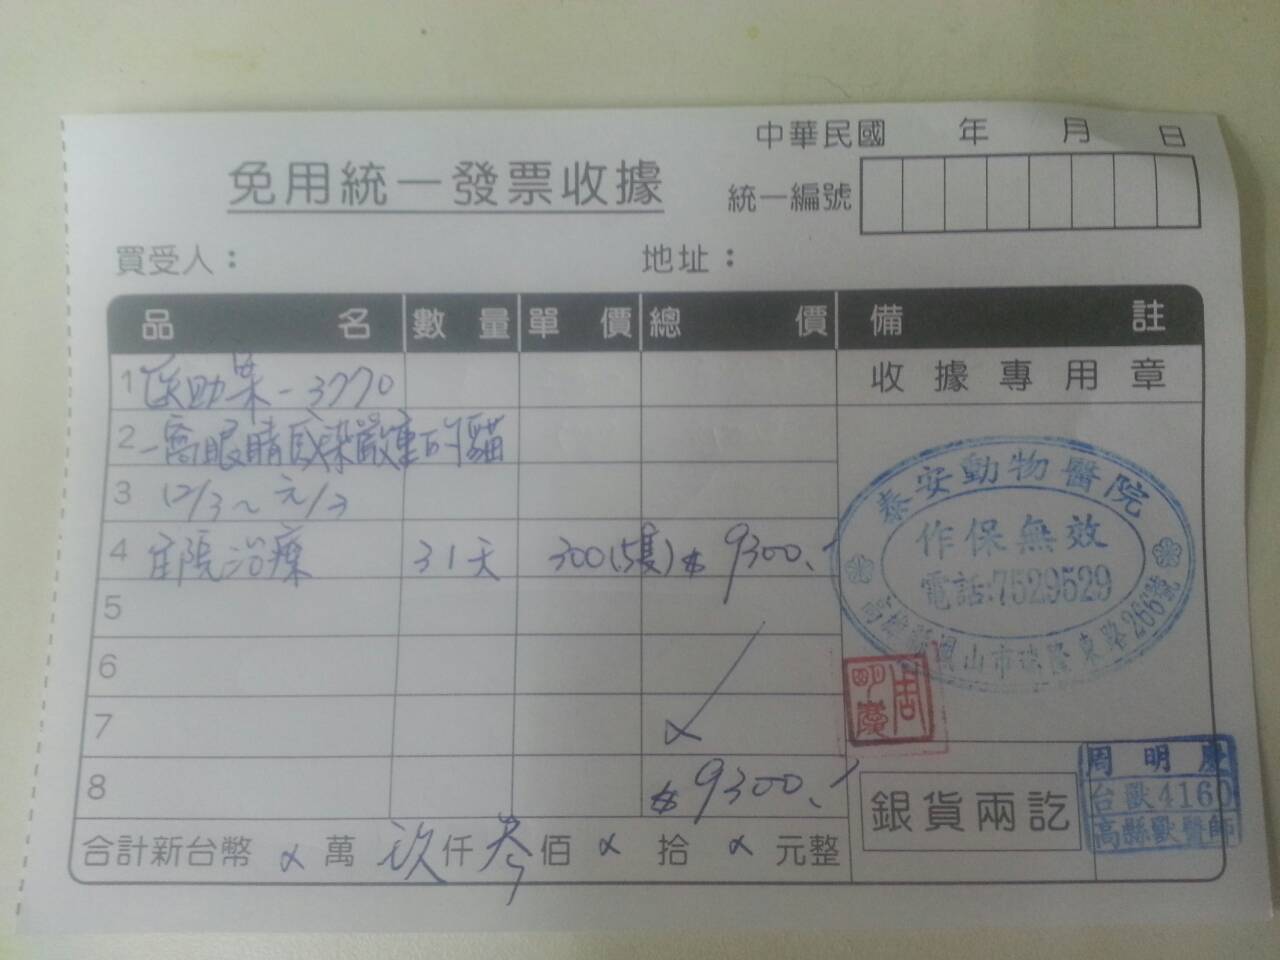 中華民國 年 月 日
免用統一發票收據
統一編號
買受人： 地址：
品名 數量 單價 總價 備註
1 医助案-3770
收據專用章
2 一窩眼睛感染嚴重的貓
3 12/3~元/3
4 住院治療 31天 300(5隻) $ 9300.
5
6
7
8 $ 9300.
合計新台幣 萬 玖仟叁佰 拾 元整
泰安動物醫院
作保無效
電話:7529529
高雄縣鳳山市瑞隆東路266號
周明慶
銀貨兩訖
周明慶
台獸4160
高縣獸醫師